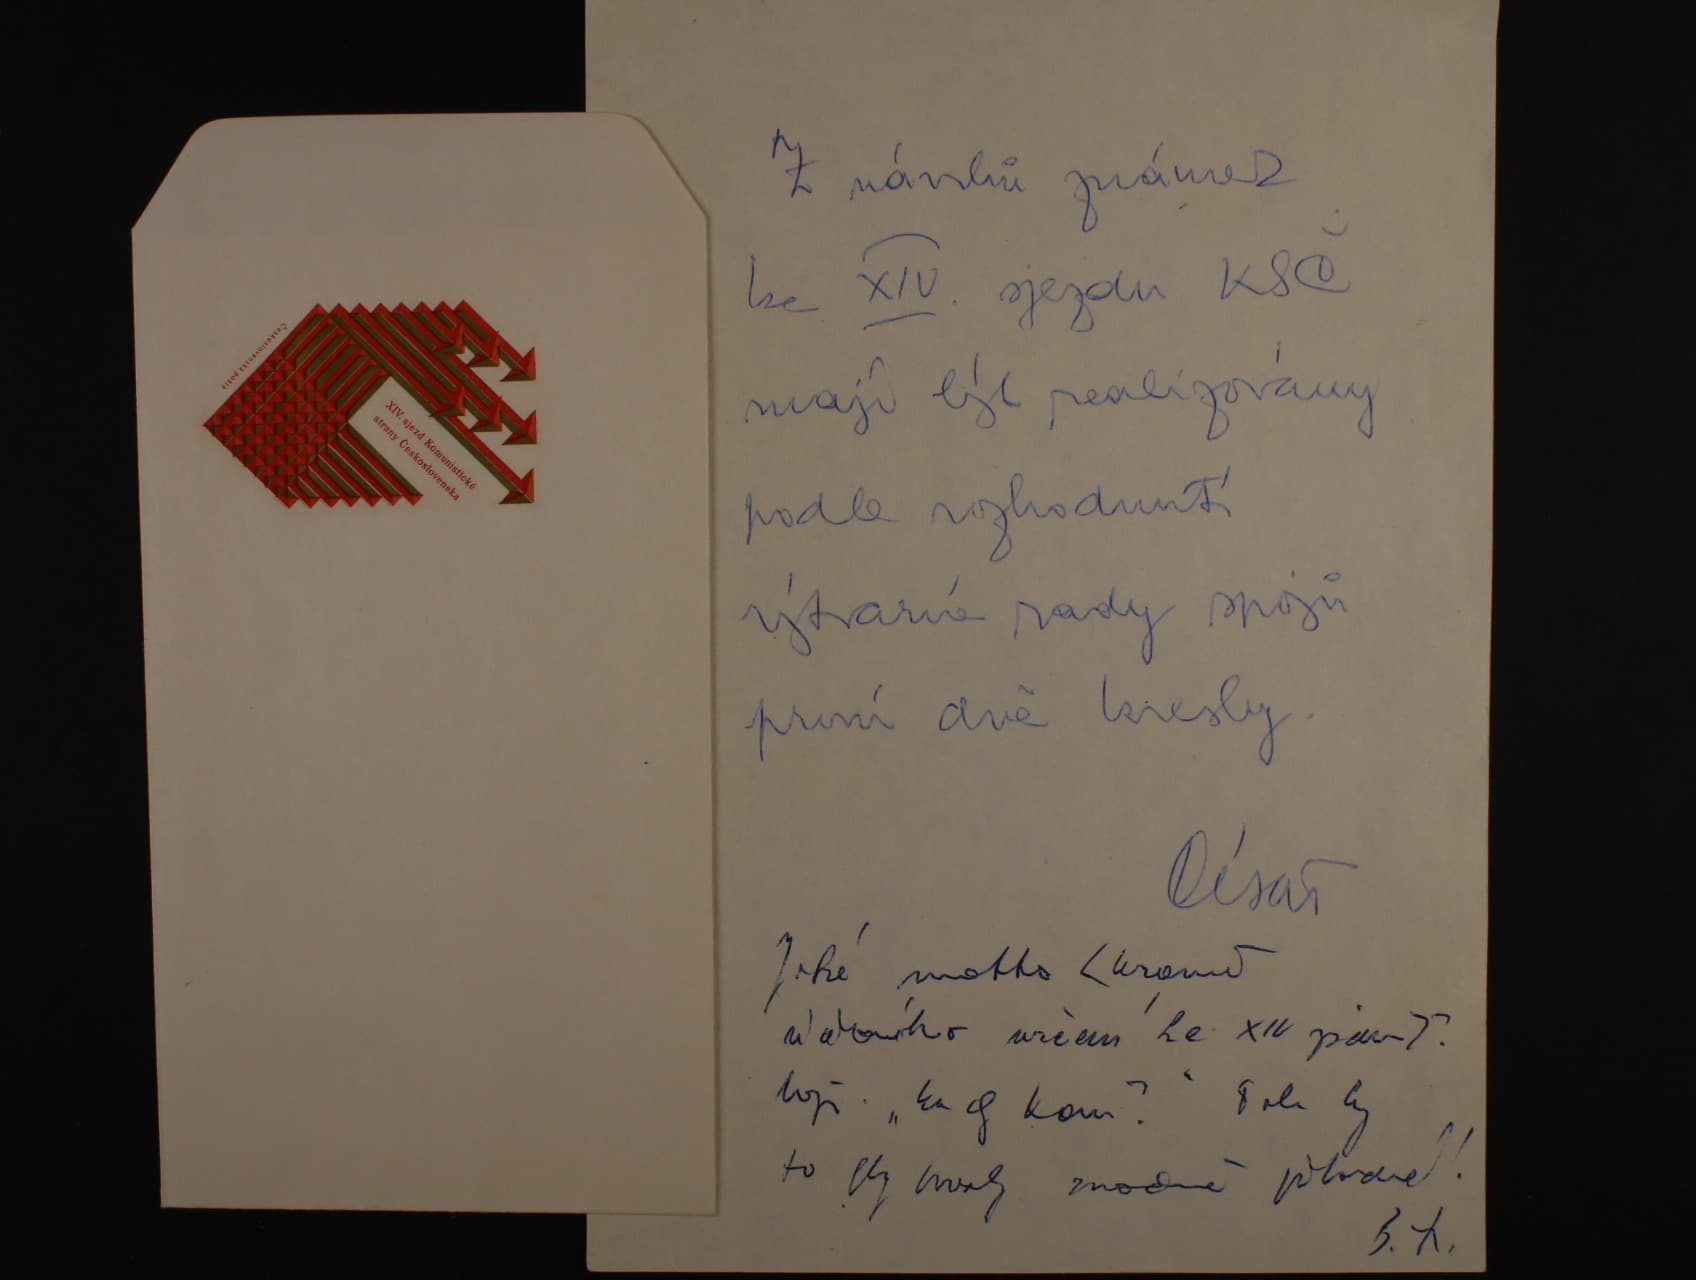 Československá pošta
XIV. sjezd Komunistické
strany Československa
Z návrhů známek
ke XIV. sjezdu KSČ
mají být realizovány
podle rozhodnutí
výtvarné rady spojů
první dvě kresby.
Césař
Jaké motto
určení ke XIV
kam?"
to byly kresby módně původné!